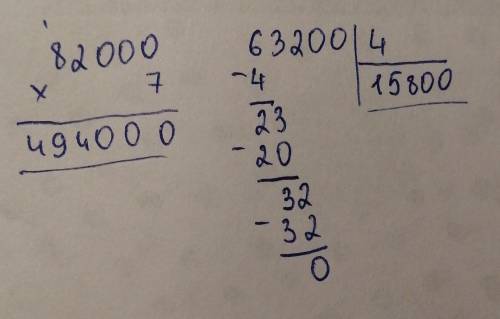 82000
× 7
494000
63200 | 4
-4 15800
23
-20
32
-32
0